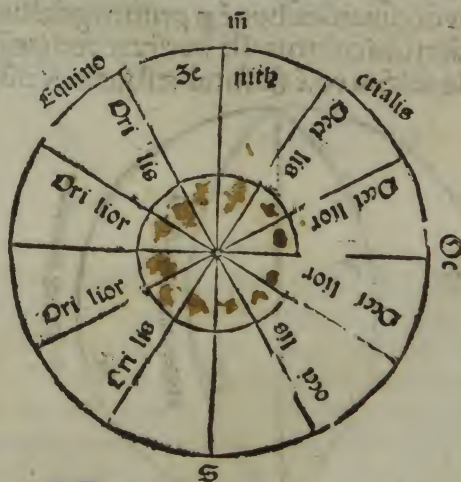 m̄
Equino ctialis
Ze nith
Ori lis
Occi lis
Ori lior
Occi lior
Oc
Ori lior
Occi lior
Ori lis
occi lis
S